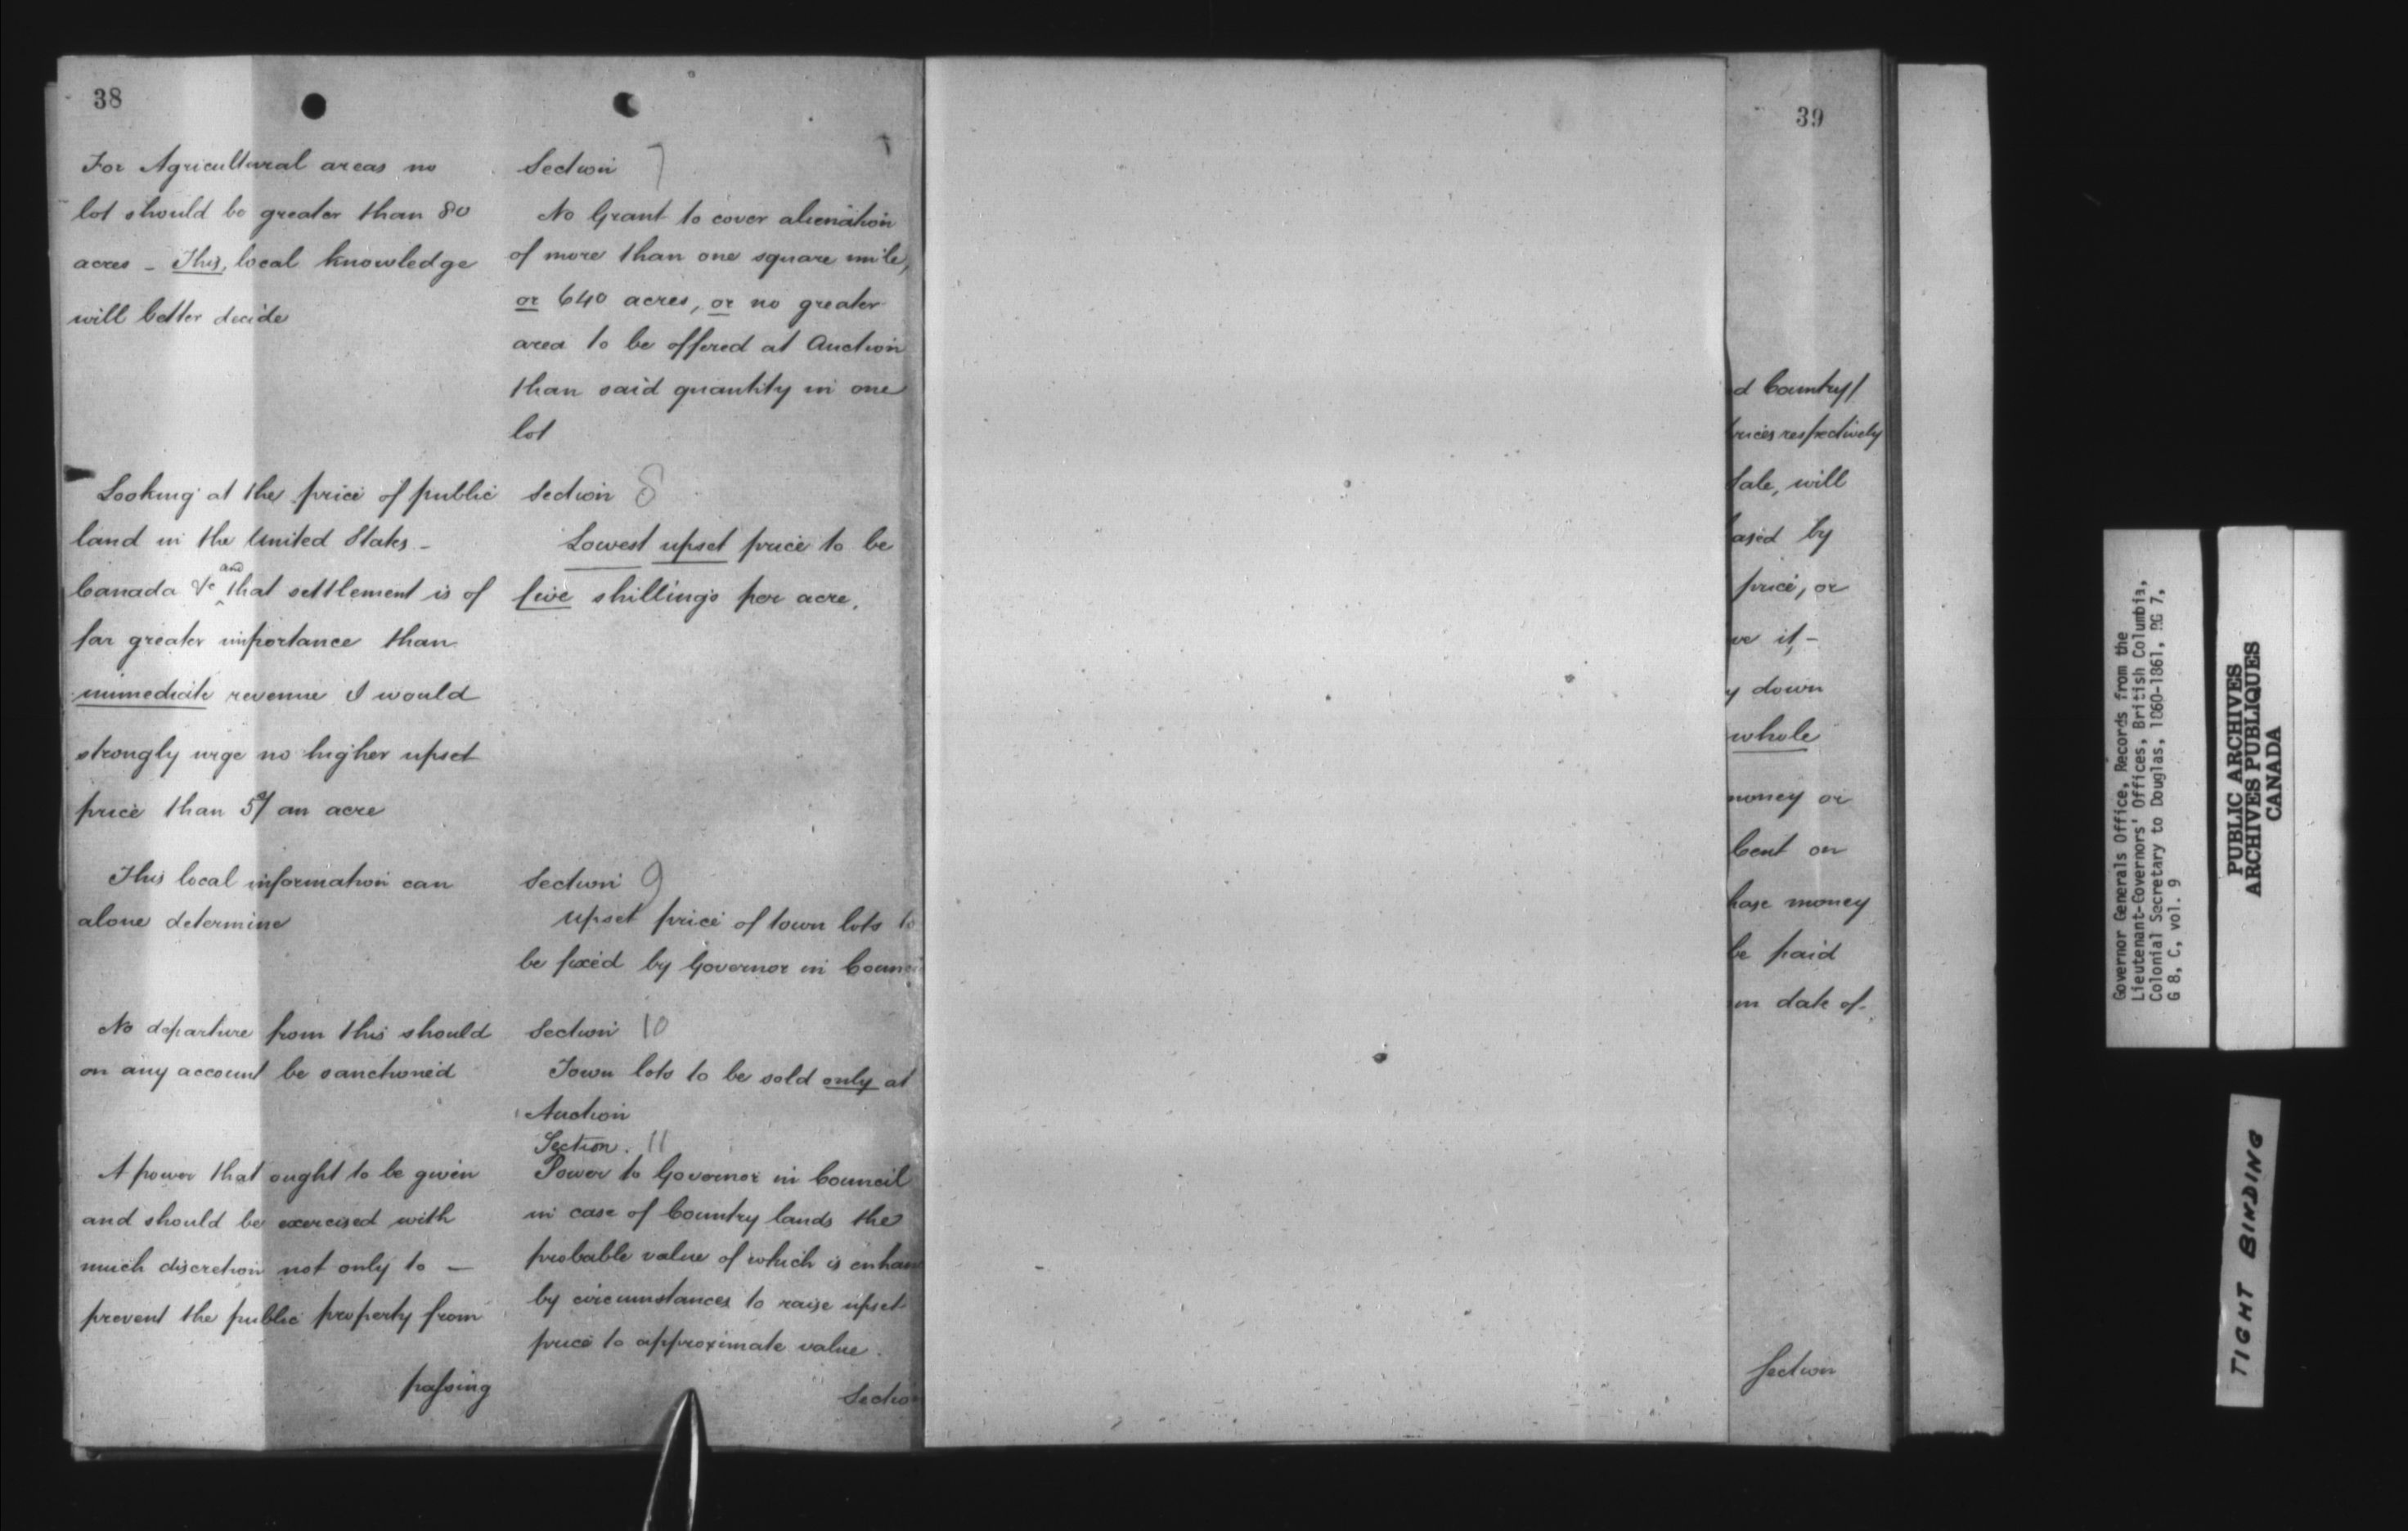 38
For Agricultural areas no
lot should be greater than 80
acres - This, local knowledge
will better decide
Section 7
No Grant to cover alienation
of more than one square mile,
or 640 acres, or no greater
area to be offered at Auction
than said quantity in one
lot
Looking at the price of public
land in the United States -
Canada &c and that settlement is of
far greater importance than
immediate revenue I would
strongly urge no higher upset
price than 5/ an acre
Section 8
Lowest upset price to be
five shillings per acre.
This local information can
alone determine
Section 9
Upset price of town lots to
be fixed by Governor in Counci
No departure from this should
on any account be sanctioned
Section 10
Town lots to be sold only at
Auction
A power that ought to be given
and should be exercised with
much discretion not only to -
prevent the public property from
passing
Section. 11
Power to Governor in Council
in case of Country lands the
probable value of which is enhan
by circumstances to raise upset
price to approximate value.
Sectio
39
d Country/
rices respectively
Sale, will
ased by
price, or
ve it, -
y down
whole
money or
Cent on
hase money
be paid
om date of
Section
Governor Generals Office, Records from the
Lieutenant-Governors' Offices, British Columbia,
Colonial Secretary to Douglas, 1860-1861, RG 7,
G 8, C, vol. 9
PUBLIC ARCHIVES
ARCHIVES PUBLIQUES
CANADA
TIGHT BINDING